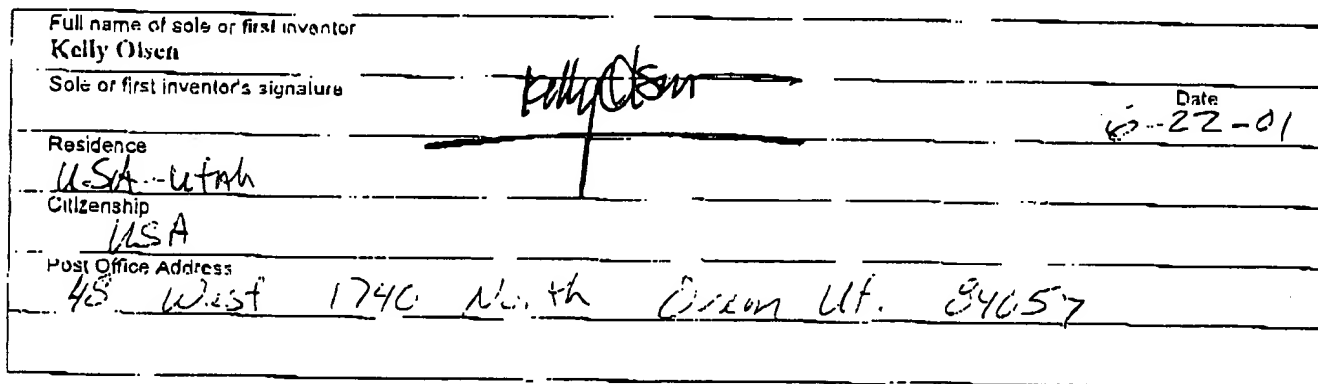 Full name of sole or first inventor
Kelly Olsen
Sole or first inventor's signature
Kelly Olsen
Date
6-22-01
Residence
USA - Utah
Citizenship
USA
Post Office Address
48 West 1740 North Orem Ut. 84057